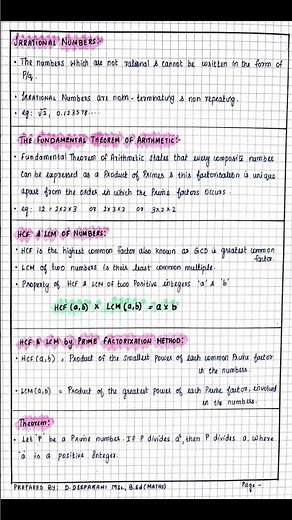 IRRATIONAL NUMBERS:-
• The numbers which are not rational & cannot be written in the form of
P/q.
• IRRATIONAL Numbers are non-terminating & non repeating.
• eg: √2, 0.123578....
THE FUNDAMENTAL THEOREM OF ARITHMETIC:-
• Fundamental Theorem of Arithmetic states that every composite number
can be expressed as a Product of Primes & this factorisation is unique
apart from the order in which the Prime factors occurs.
• eg: 12 = 2×2×3 or 2×3×2 or 3×2×2
HCF & LCM OF NUMBERS:-
• HCF is the highest common factor also known as GCD is greatest common
factor.
• LCM of two numbers is their least common multiple.
• Property of HCF & LCM of two Positive integers 'a' & 'b'
HCF(a,b) × LCM(a,b) = a×b
HCF & LCM by PRIME FACTORIZATION METHOD:-
• HCF(a,b) = Product of the smallest power of each common Prime factor
in the numbers.
• LCM(a,b) = Product of the greatest power of each Prime factor, involved
in the numbers.
Theorem:-
• Let 'P' be a Prime number. If P divides a², then P divides a, where
'a' is a positive Integer.
PREPARED BY: D. DEEPARANI MSc, B.Ed (MATHS)
Page -